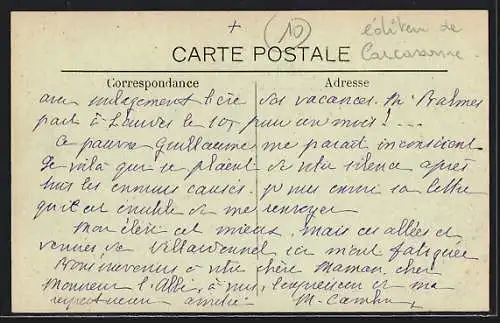 + 10 éditeur de
Carcassonne.
CARTE POSTALE
Correspondance Adresse
avec soulagement l'ère des vacances. Mr
part à Londres le 10, pour un mois! ...
Ce pauvre Guillaume me paraît inconscient
le voilà qui se plaint de votre silence après
tous les ennuis causés. je vous envoie sa lettre
qu'il est inutile de me renvoyer
Mon élève est mieux, mais ces allées et
venues de Villardonnel ici m'ont fatiguée
souvenirs à votre chère Maman, cher
Monsieur l'Abbé, à vous, l'expression de ma
respectueuse amitié M.